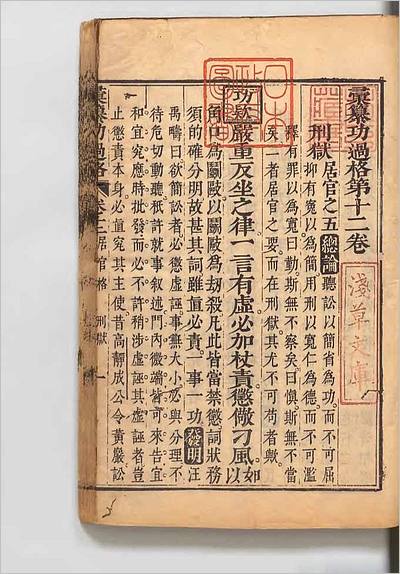 彙纂功過格第十二卷
刑獄 居官之五 總論 聽訟以簡省為功。而不可
抑有寃以為簡用刑以寬仁為德。而不可濫
釋有罪以為寬曰勤。斯無不察矣曰慎。斯無不當
矣。二者居官之要。而在刑獄其尤不可苟者歟
功款 嚴重反坐之律一言有虛必加杖責懲儆刁風 如以
角口為鬭毆以鬭毆為劫殺凡此皆當禁懲詞狀務
須的確分明故甚其詞雖重必責一事一功 發明 汪
禹疇曰欲簡訟者必懲虛誣事無大小必與分理不
待危切動聽祇許就事叙述門內微端皆可來告宜
和宜究應時批發而必不許稍涉虛誣其虛誣者豈
止懲責本身必直究其主使昔高靜成公令黃巖訟
彙纂功過格 卷十二居官格 刑獄 一
淺草文庫
日本政府圖書